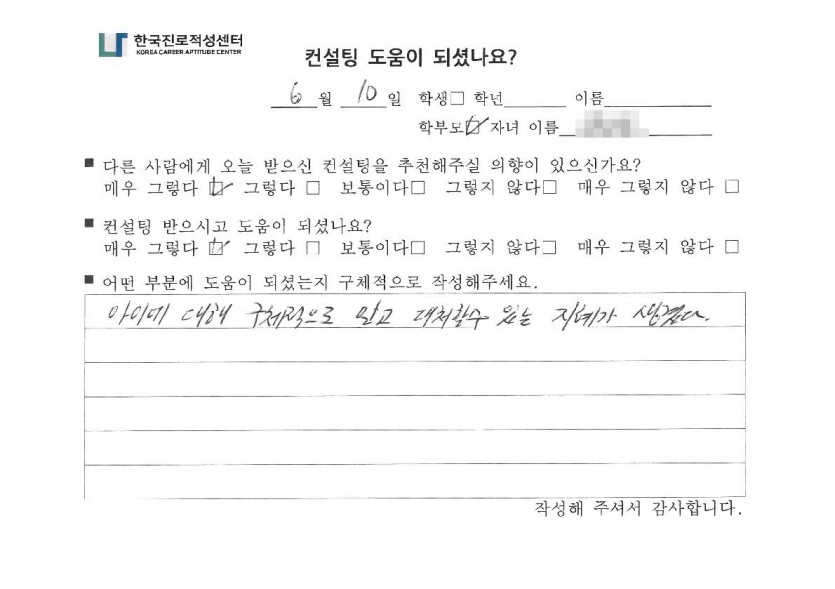 한국진로적성센터
KOREA CAREER APTITUDE CENTER
컨설팅 도움이 되셨나요?
6 월 10 일 학생□ 학년 이름
학부모☑ 자녀 이름
■ 다른 사람에게 오늘 받으신 컨설팅을 추천해주실 의향이 있으신가요?
매우 그렇다 ☑ 그렇다 □ 보통이다□ 그렇지 않다□ 매우 그렇지 않다 □
■ 컨설팅 받으시고 도움이 되셨나요?
매우 그렇다 ☑ 그렇다 □ 보통이다□ 그렇지 않다□ 매우 그렇지 않다 □
■ 어떤 부분에 도움이 되셨는지 구체적으로 작성해주세요.
아이에 대해 구체적으로 알고 대처할수 있는 지혜가 생겼다.
작성해 주셔서 감사합니다.